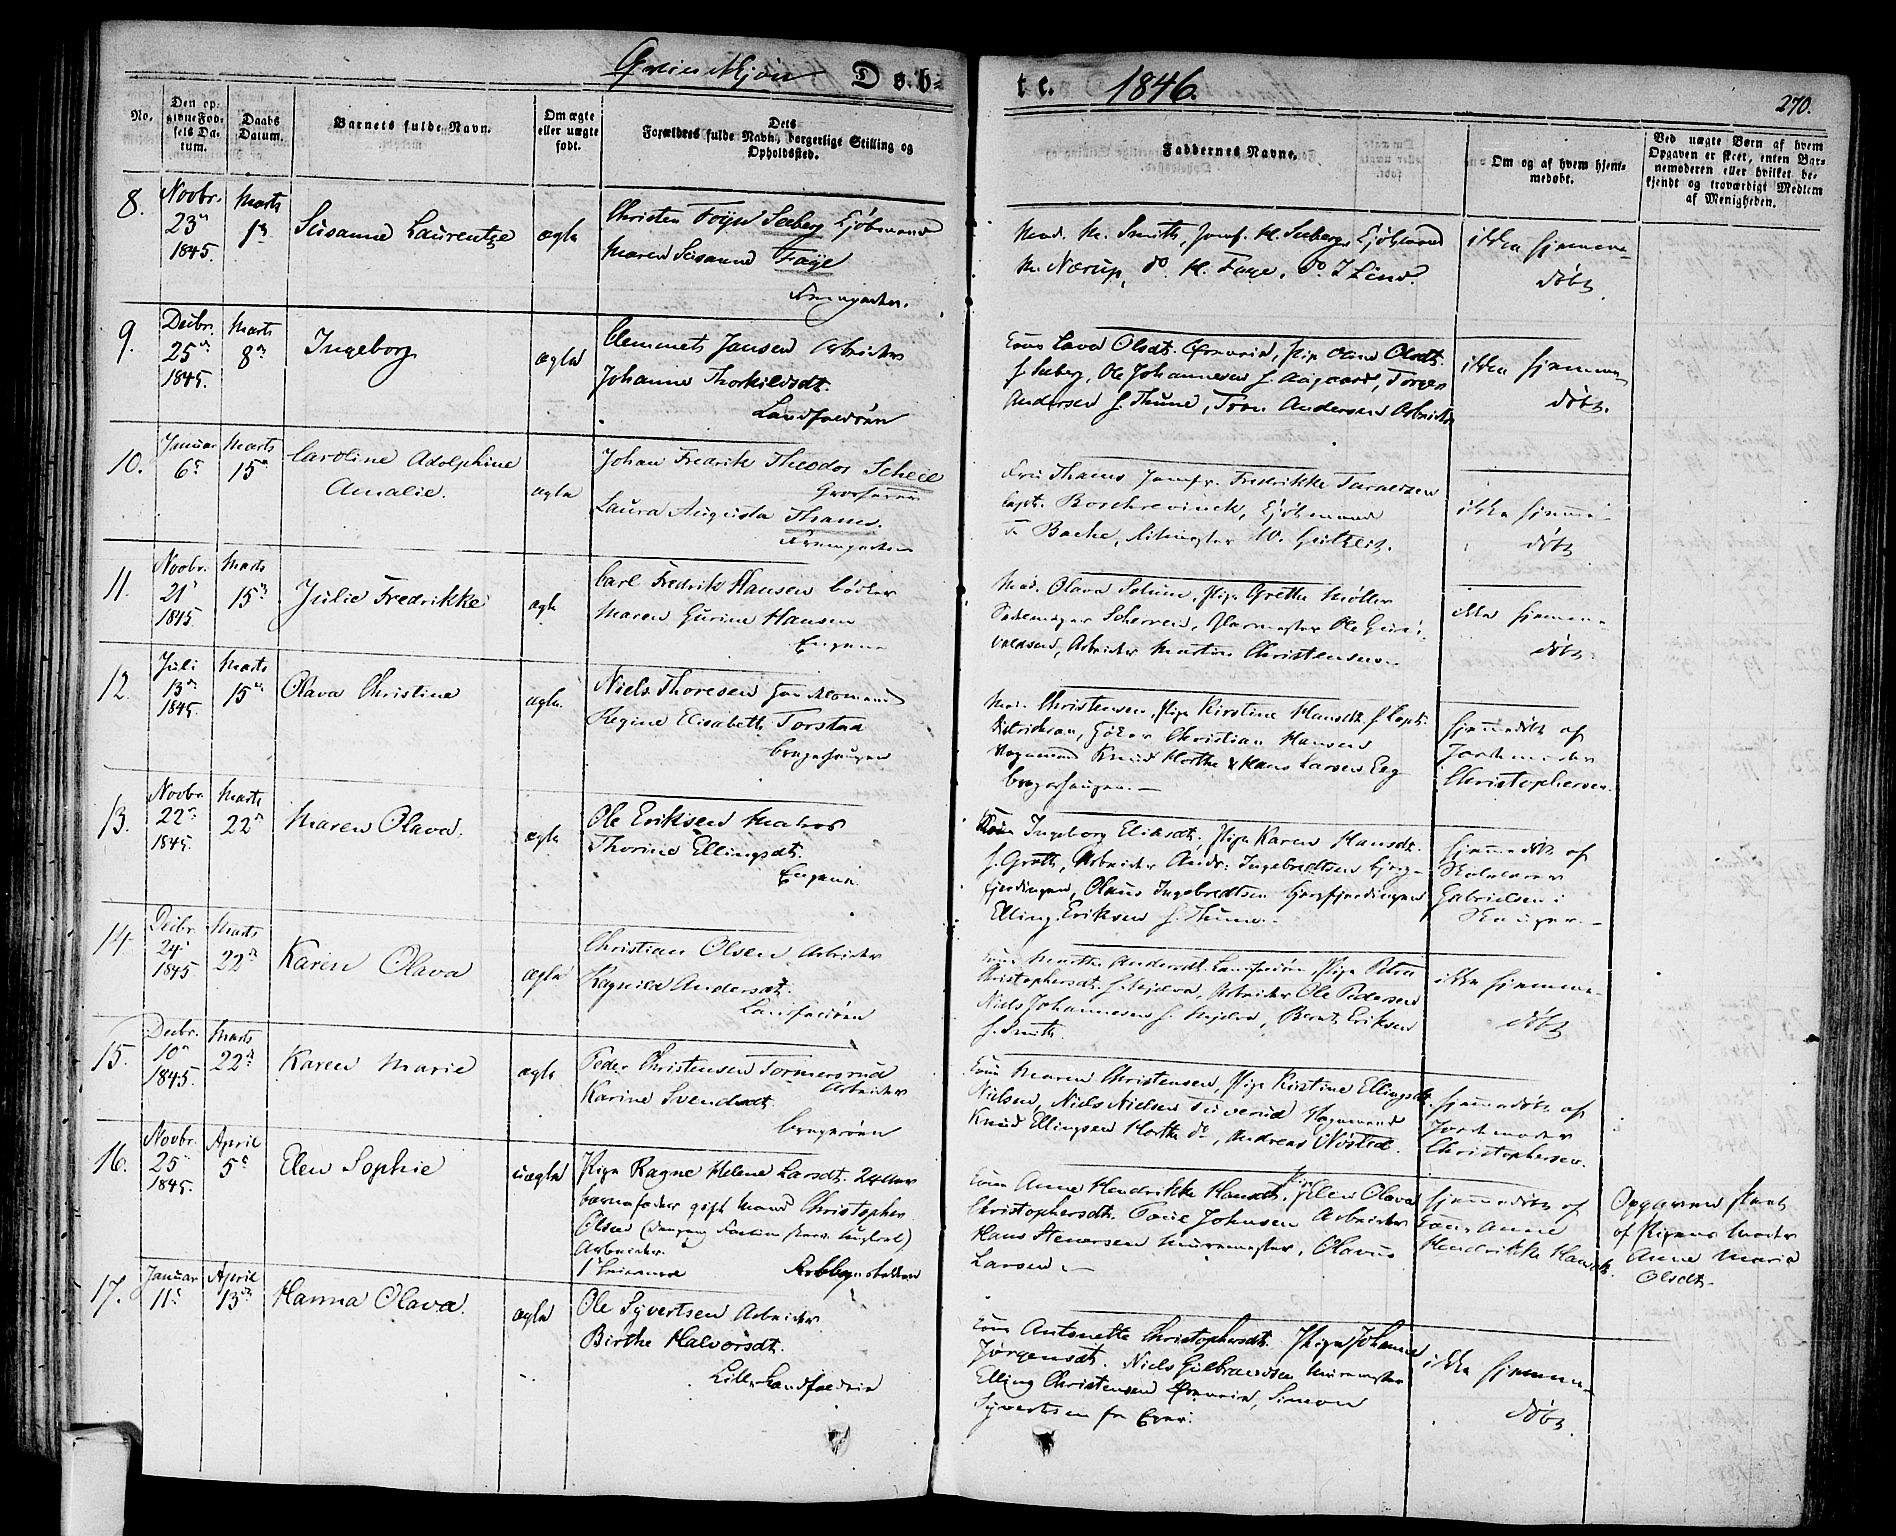 Qvindekjøn Døb-
te. 1846. 270.
No. Den opgivne Fødsels Datum. Daabs Datum. Barnets fulde Navn. Om ægte eller uægte født. Dets Forældres fulde Navn, borgerlige Stilling og Opholdssted.
Faddernes Navne. Om og af hvem hjemmedøbt. Ved uægte Børn af hvem Opgaven er skeet, enten Barnemoderen eller hvilket bekjendt og troværdigt Medlem af Menigheden.
8. Novbr. 23 1845. Marts 1 Susanne Laurentze ægte
Christen Seeberg Kjøbmand
Maren Susanne Faye
Mad. M. Smith, Jomf. H. Seeberg, Kjøbmand
N. Nærup, do. H. Faye, do. J Lind.
ikke hjemme-
døbt.
9. Decbr. 25 1845. Marts 8 Ingeborg ægte
Clemmet Jansen Arbeider
Johanne Thorkildsdt.
Landfaldøen
Kone Lava Olsdt. Pige Oline Olsdt.
f. Seeberg, Ole Johannesen f. Aagaard,
Andersen f. Thune, Andersen Arbeider
ikke hjemme
døbt.
10. Januar 6 Marts 15 Caroline Adolphine
Amalie. ægte
Johan Fredrik Theodor Scheel
Laura Augusta Thams.
Fru Thams Jomfr. Fredrikke
Capt. Borchrevinck, Kjøbmand
Bache, Ritmester W.
ikke hjemme
døbt
11. Novbr. 21 1845 Marts 15 Julie Fredrikke ægte
Carl Fredrik Hansen Bødker
Maren Gurine Hansen
Engene
Mad. Olava Pige Grethe Møller
Glarmester Ole
Arbeider Martin Christensen
ikke hjemme-
døbt.
12. Juli 13 1845. Marts 15 Olava Christine ægte
Niels Thoresen
Regine Elisabeth
Bragerhaugen
Mad. Christensen, Pige Kirstine Hansdt. f. Capt.
Christian Hansen
Vognmand Knud Horthe & Hans Larsen
Bragerhaugen.
hjemmedøbt af
Jordmoder
Christophersen.
13. Novbr. 22 1845. Marts 22 Maren Olava. ægte
Ole Eriksen Matros
Thorine Ellingsdt.
Engene
Kone Ingeborg Eliasdt, Pige Karen Hansdt.
f. Groth, Arbeider Andr: Ingebredtsen
Olaus Ingebredtsen
Elling Eriksen f. Thune
hjemmedøbt af
Skolelærer
Gabrielsen i
14. Decbr. 24 1845 Marts 22 Karen Olava ægte
Christian Olsen Arbeider
Ragnild Andersdt.
Landfaldøen
Kone Marthe Andersdt. Landfaldøen, Pige Petra
Christophersdt. Arbeider Ole Pedersen
Niels Johannesen Bernt Eriksen
f. Smith.
ikke hjemme-
døbt
15. Decbr. 10 1845. Marts 22 Karen Marie ægte
Peder Christensen Tormersrud
Arbeider
Karine Svendsdt.
Bragerøen
Kone Maren Christensen, Pige Kirstine Ellingsdt.
Nielsen, Niels Nielsen Vognmand
Knud Ellingsen Horthe do, Andreas Nøsted.
hjemmedøbt af
Jordmoder
Christophersen.
16. Novbr. 25 1845. April 5 Elen Sophie uægte
Pige Ragne Helene Larsdt. 24 Aar
barnefader gift Mand Christopher
Olsen
Arbeider
Kone Anne Hendrikke Hansdt, Pige Elen Olava
Christophersdt. Johnsen Arbeider
Hans Stenersen Muurmester, Olavus
Larsen
hjemmedøbt af
Kone Anne
Hendrikke Hansdt.
Opgaven skeet
af Pigens Moder
Anne Maria
Olsdt.
17. Januar 11 April 13 Hanna Olava. ægte
Ole Syvertsen Arbeider
Birthe Halvorsdt.
Lille Landfaldøen
Kone Antonette Christophersdt. Pige Johanne
Jørgensdt. Niels Gulbrandsen Muurmester
Elling Christensen Simon
Syvertsen
ikke hjemme-
døbt